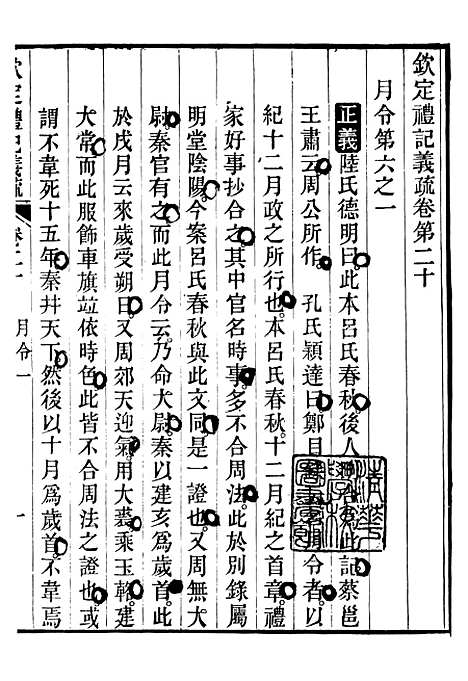 欽定禮記義疏卷第二十
月令第六之一
正義陸氏德明曰此本呂氏春秋後人記蔡邕
王肅云周公所作 孔氏穎達曰鄭目令者以
紀十二月政之所行也本呂氏春秋十二月紀之首章禮
家好事抄合之其中官名時事多不合周法此於別錄屬
明堂陰陽今案呂氏春秋與此文同是一證也又周無大
尉秦官有之而此月令云乃命大尉秦以建亥爲歲首此
於戌月云來歲受朔日又周郊天迎氣用大裘乘玉輅建
大常而此服飾車旗竝依時色此皆不合周法之證也或
謂不韋死十五年秦幷天下然後以十月爲歲首不韋焉
欽定禮記義疏 卷二十 月令一 一